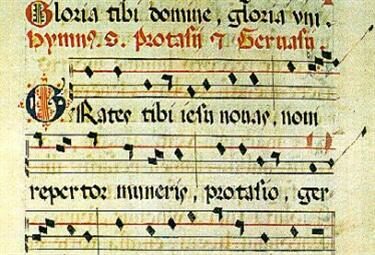 Gloria tibi domine, gloria vni
Hymn⁹. S. Protasii ⁊ Gervasii.
Grates tibi iesu novas, novi
repertor muneris, protasio, ger